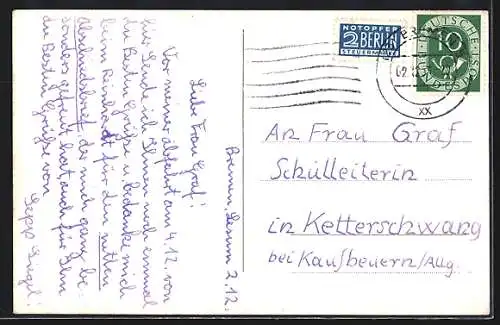 Bremen, Lesum 2.12.
Liebe Frau Graf!
Vor meiner Abfahrt am 4.12. von
hier sende ich Ihnen noch einmal
die Besten Grüße u. bedanke mich
beim Reinhardt für den netten
Abschiedsbrief der mich ganz be-
sonders gefreut hat, auch für Ihn
die Besten Grüße von
Sepp Siegel!
NOTOPFER
2 BERLIN
STEUERMARKE
DEUTSCHE POST
10
XX
An Frau Graf
Schulleiterin
in Ketterschwang
bei Kaufbeuern/Allg.